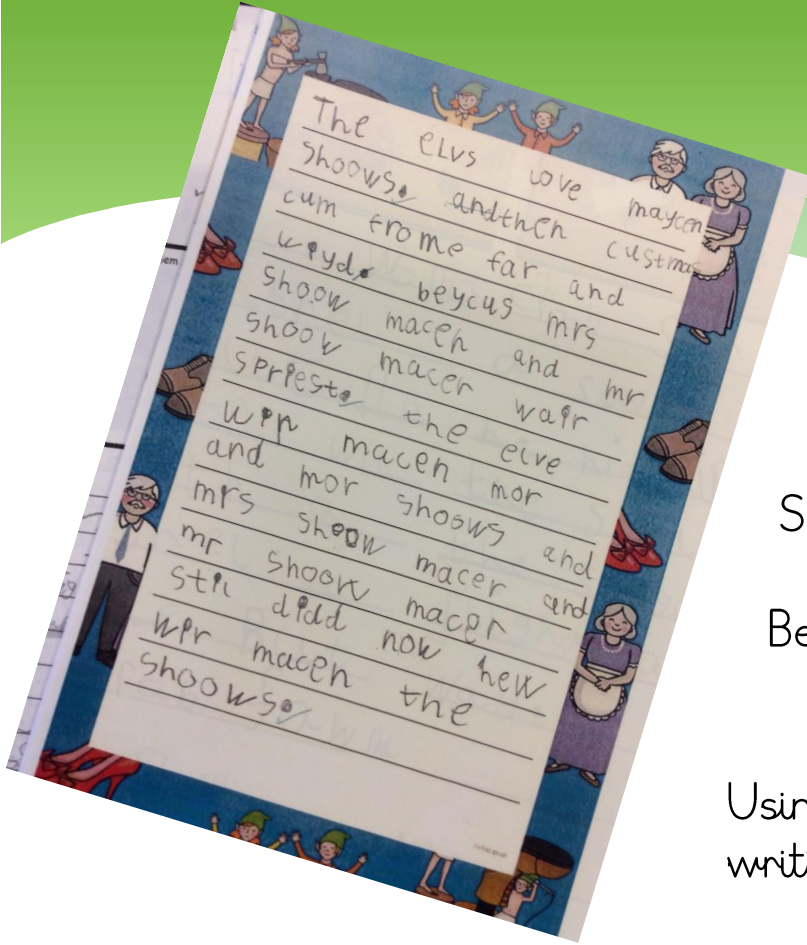 The elvs love maycen
shoows. andthen custmas
cum frome far and
wiyd. beycus mrs
shoow macer and mr
shoow macer wair
spriest. the elve
wir macen mor
and mor shoows and
mrs shoow macer and
mr shoow macer
stil didd now hew
wir macen the
shoows.
em
S
Be
Usin
writi